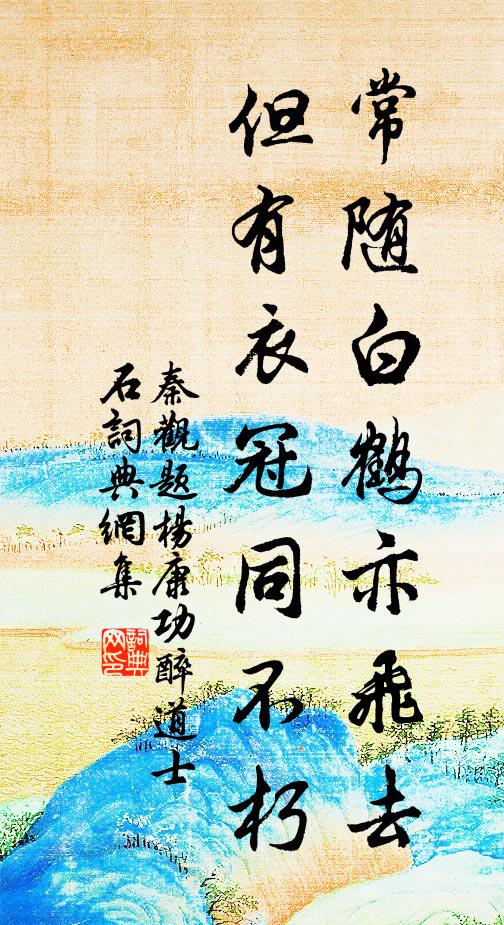 常随白鶴亦飛去
但有衣冠同不朽
秦觀題楊康功醉道士
石詞典網集
詞典網印